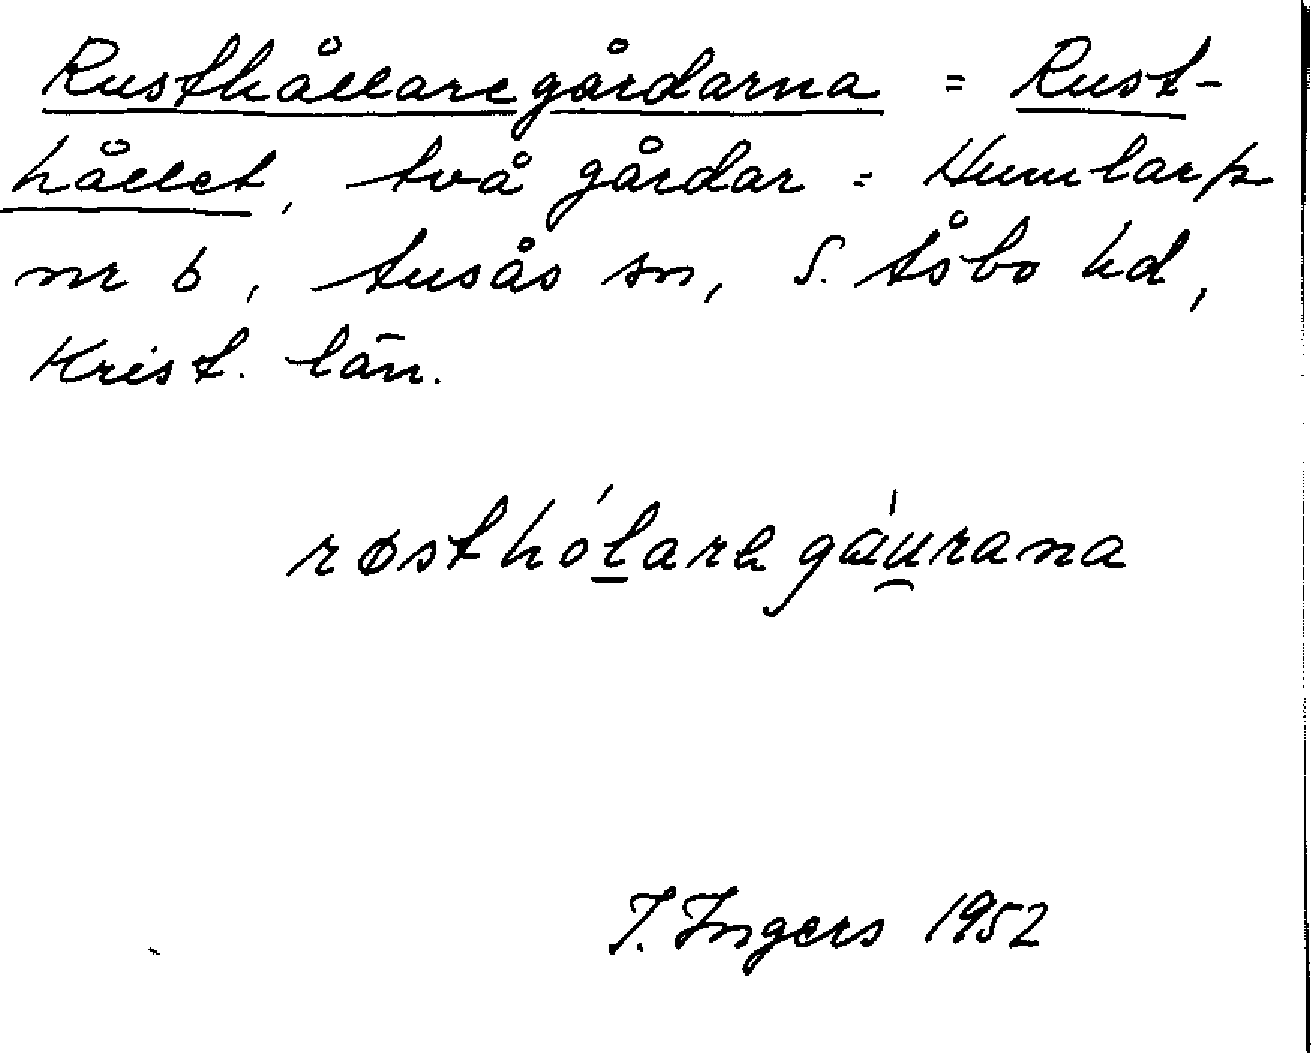 Rusthållaregårdarna = Rust-
hållet, två gårdar = Humlarp
nr 6, Ausås sn, S. Åsbo hd,
Krist. län.
røsthólarə gáu̯rana
I. Ingers 1952